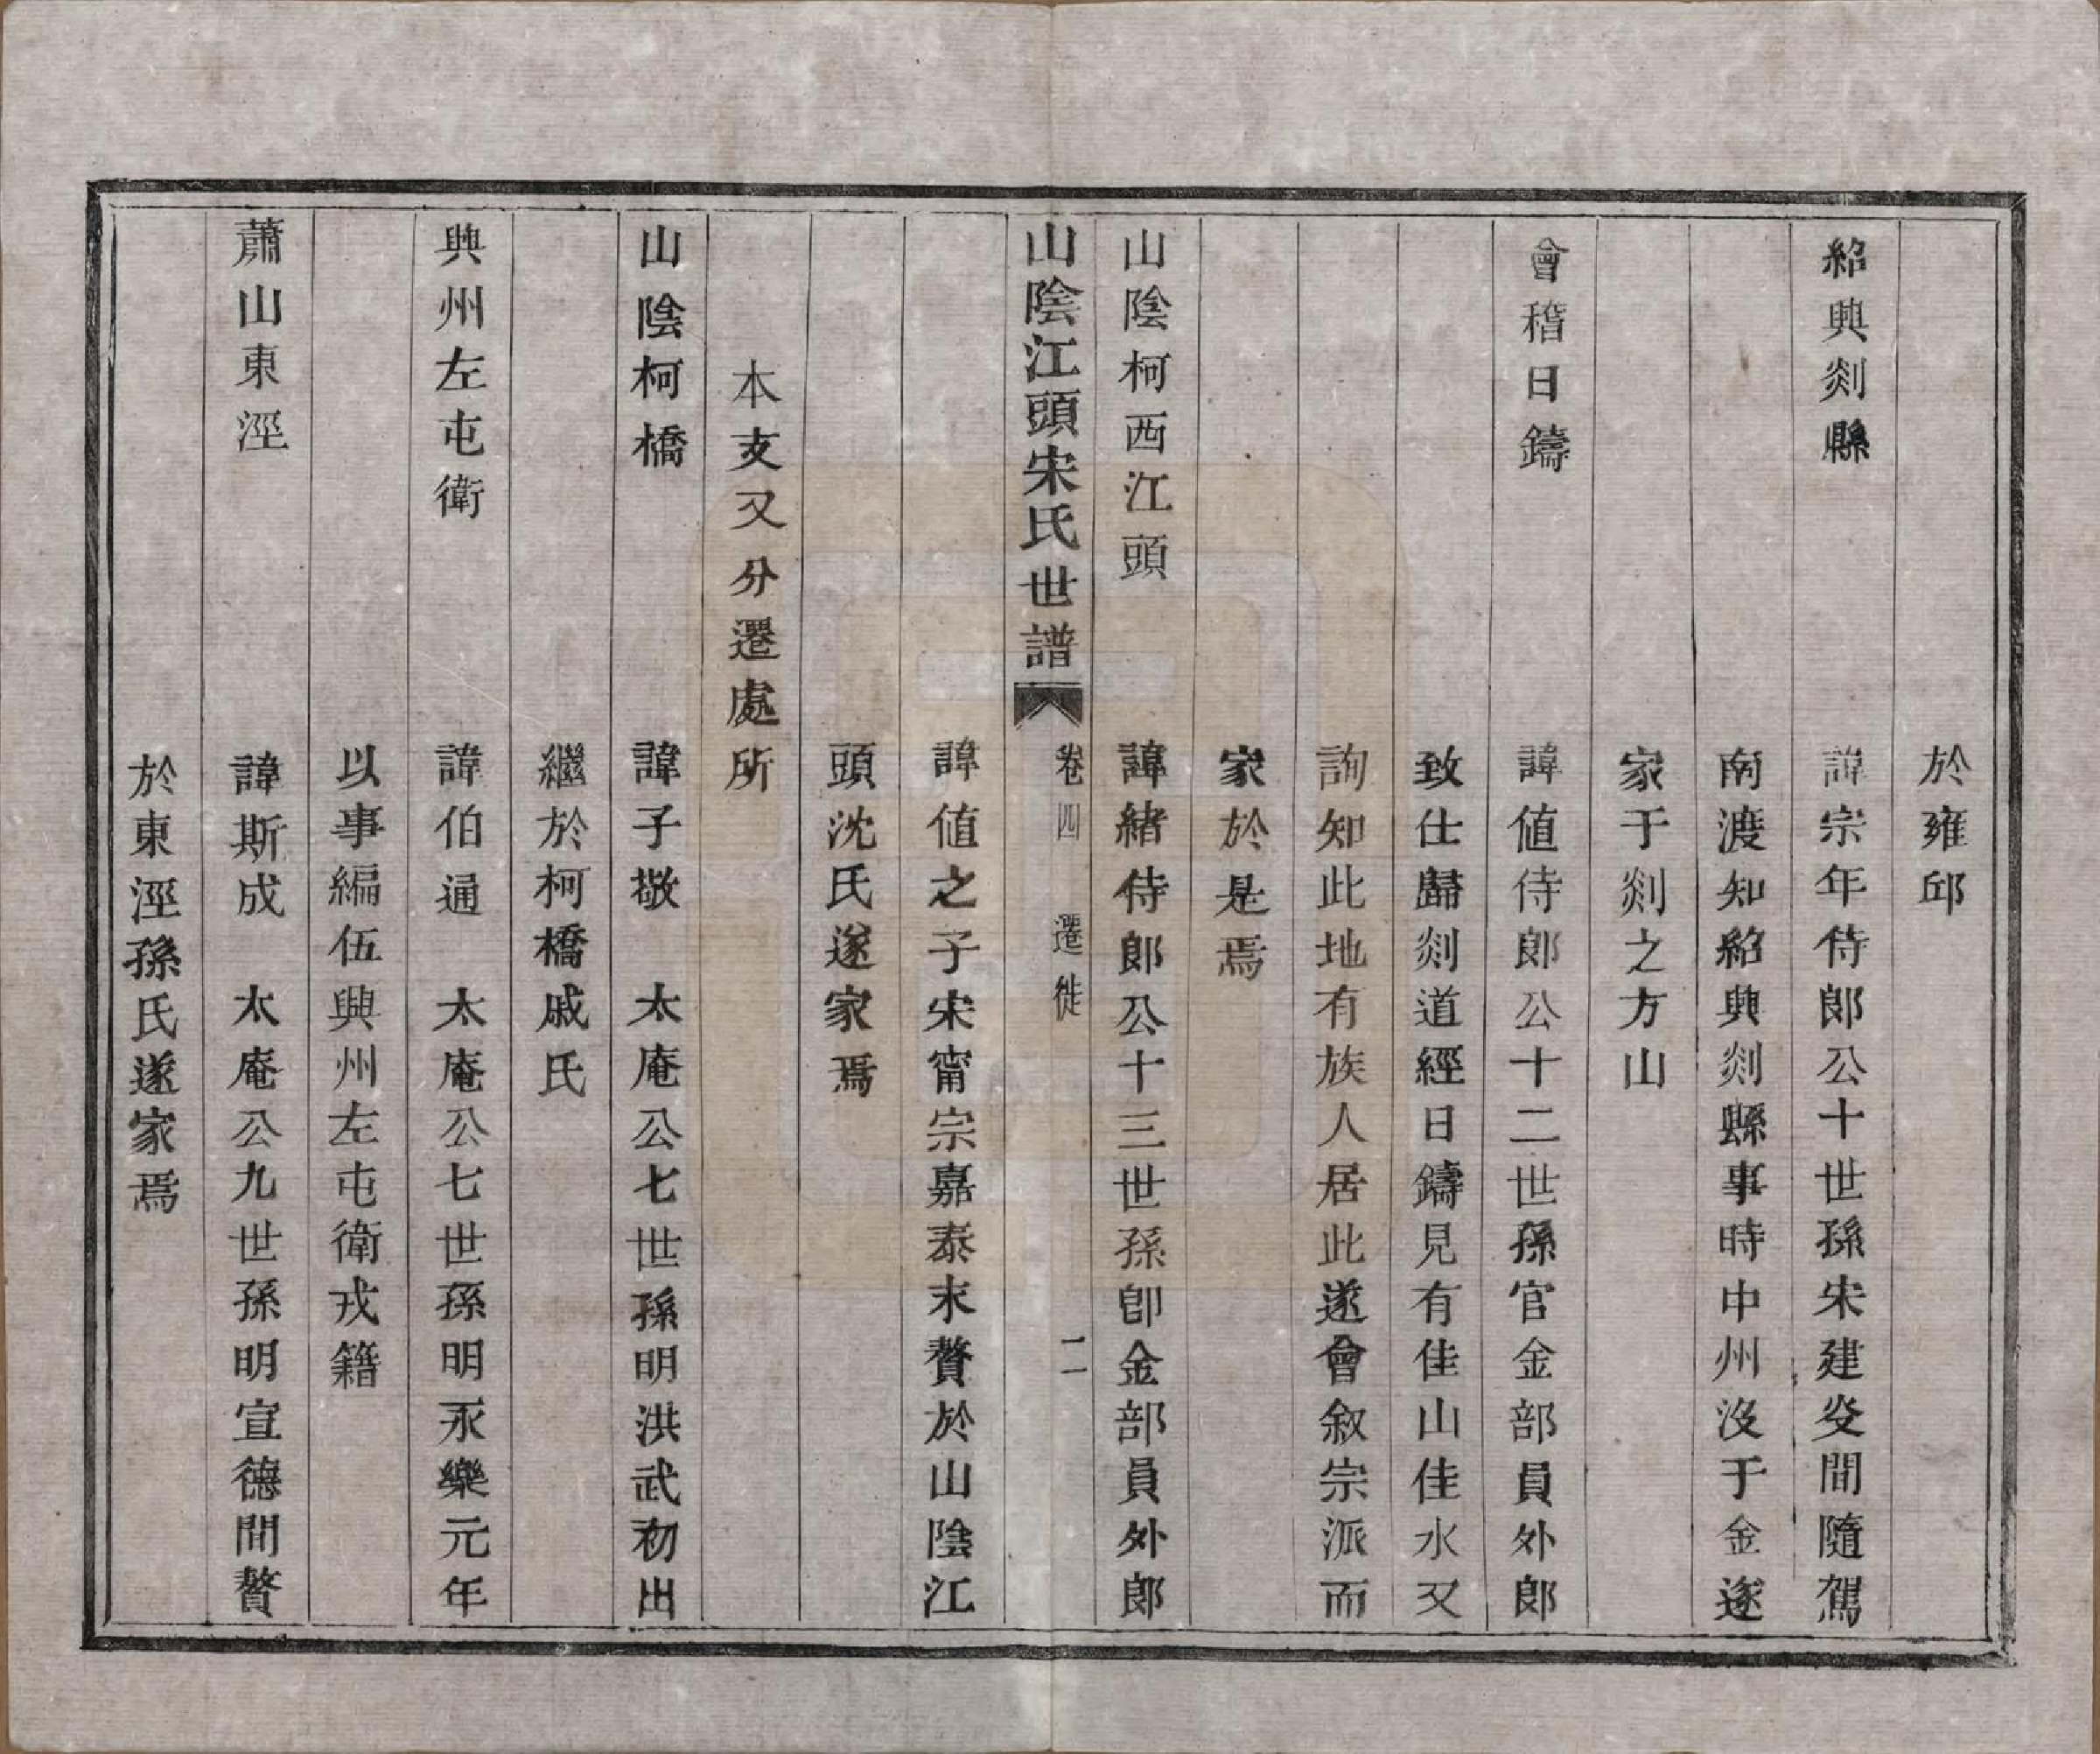 於雍邱
紹興剡縣　諱宗年侍郎公十世孫宋建炎間隨駕
南渡知紹興剡縣事時中州沒于金遂
家于剡之方山
會稽日鑄　諱値侍郎公十二世孫官金部員外郎
致仕歸剡道經日鑄見有佳山佳水又
詢知此地有族人居此遂會敘宗派而
家於是焉
山陰柯西江頭　諱緒侍郎公十三世孫卽金部員外郎
山陰江頭宋氏世譜　卷四　遷徙　二
諱値之子宋甯宗嘉泰末贅於山陰江
頭沈氏遂家焉
本支又分遷處所
山陰柯橋　諱子敬　太庵公七世孫明洪武初出
繼於柯橋戚氏
興州左屯衛　諱伯通　太庵公七世孫明永樂元年
以事編伍興州左屯衛戎籍
蕭山東涇　諱斯成　太庵公九世孫明宣德間贅
於東涇孫氏遂家焉